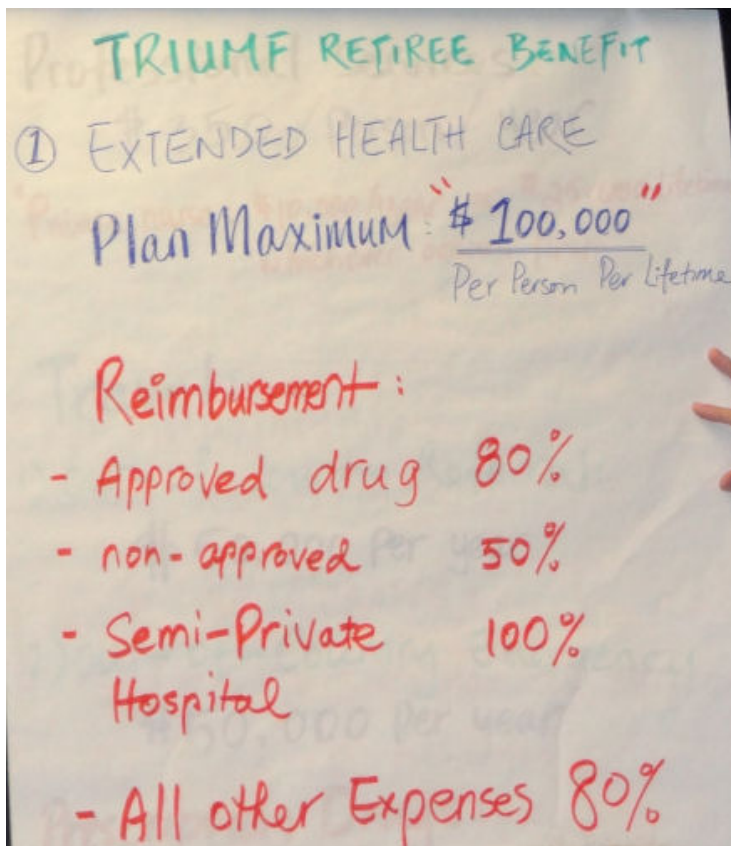 TRIUMF RETIREE BENEFIT
① EXTENDED HEALTH CARE
Plan Maximum: "$ 100,000"
Per Person Per Lifetime
Reimbursement:
- Approved drug 80%
- non-approved 50%
- Semi-Private 100%
Hospital
- All other Expenses 80%